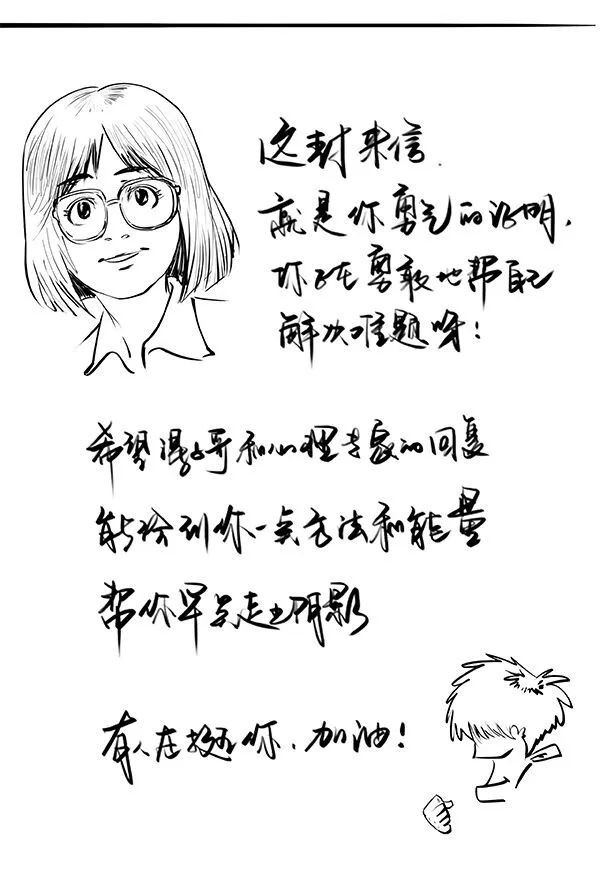 这封来信.
就是你勇气的证明,
你正在勇敢地帮自己
解决难题呀!
希望混子哥和心理专家的回复
能给到你一点方法和能量
帮你早点走出阴影
有人在挺你、加油!